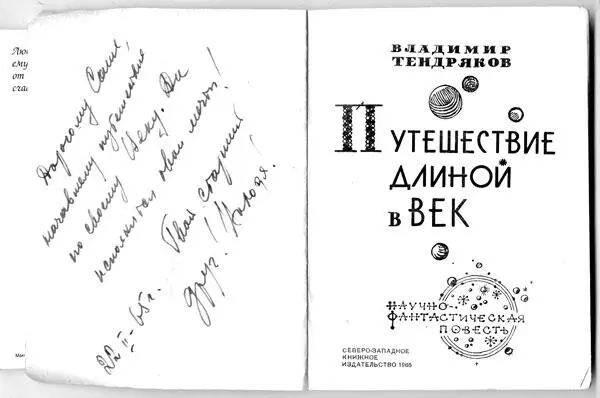 Люб
ему
от
сча
Дорогому Саше,
начавшему путешествие
по своему Веку. Да
исполнятся твои мечты!
Твой старший
друг!
22 II-65 г.
ВЛАДИМИР
ТЕНДРЯКОВ
ПУТЕШЕСТВИЕ
ДЛИНОЙ
В ВЕК
НАУЧНО-
ФАНТАСТИЧЕСКАЯ
ПОВЕСТЬ
СЕВЕРО-ЗАПАДНОЕ
КНИЖНОЕ
ИЗДАТЕЛЬСТВО 1965